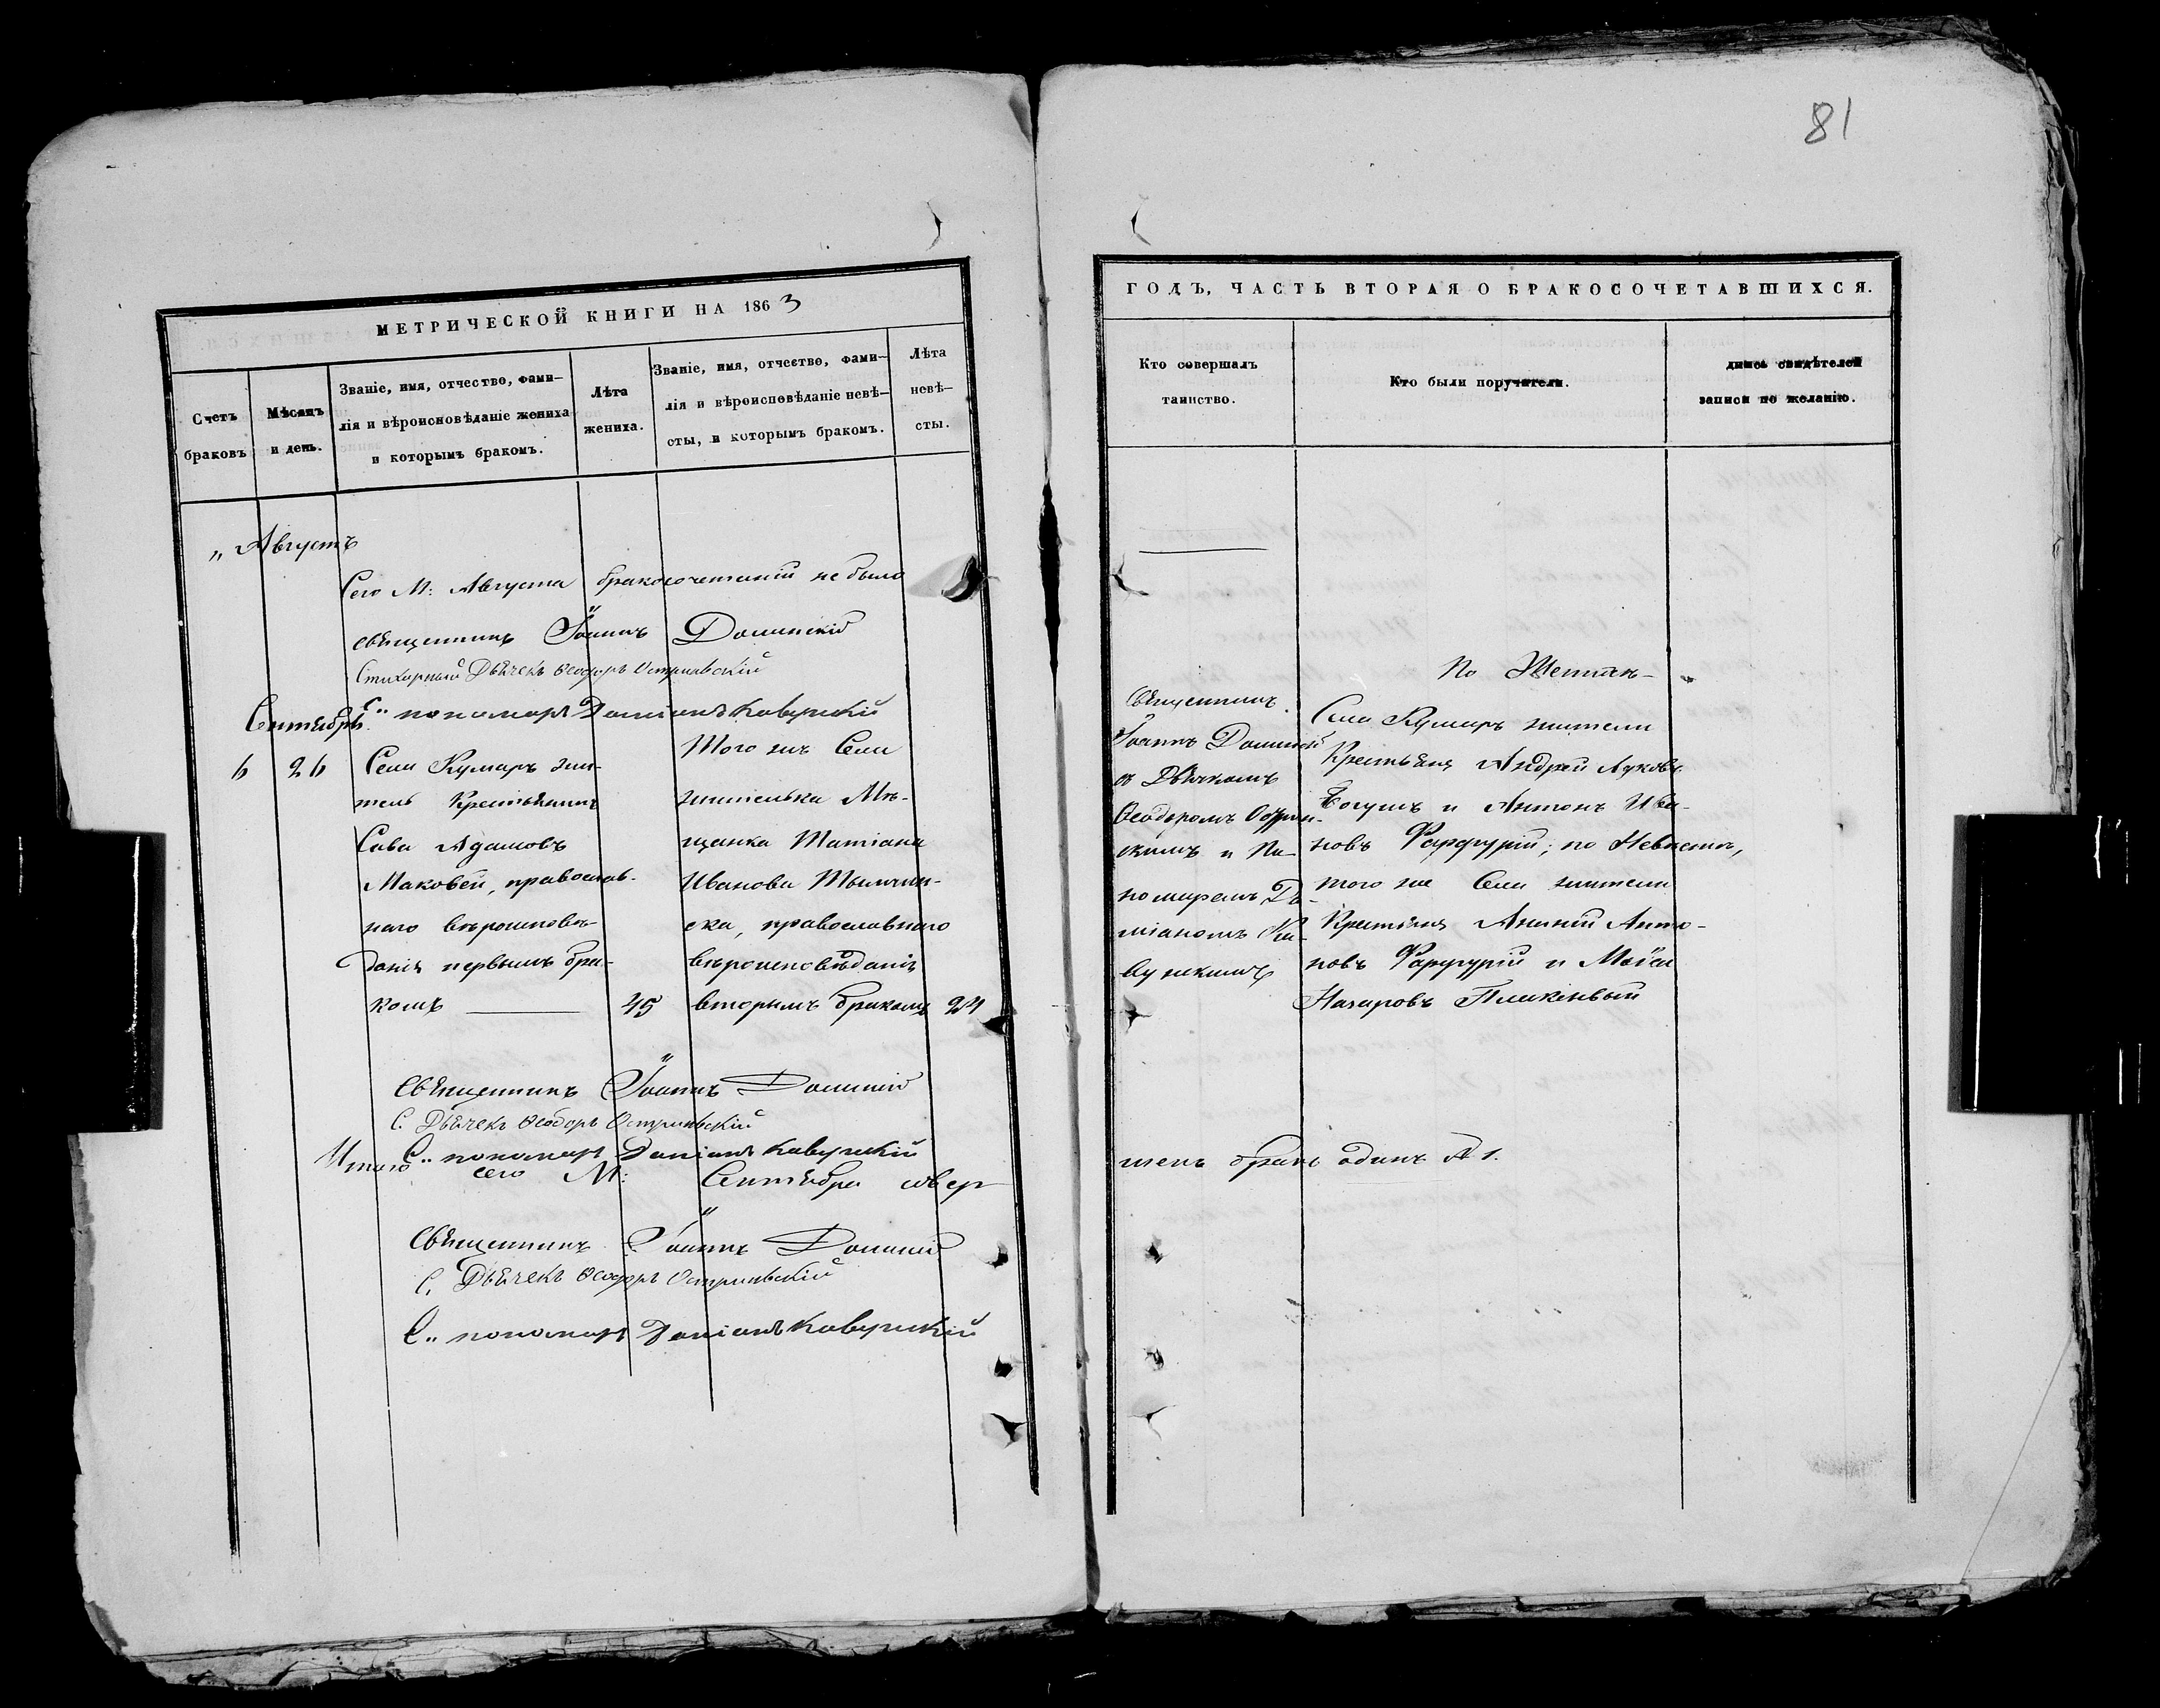 81
МЕТРИЧЕСКОЙ КНИГИ НА 1863
Счетъ браковъ
Мѣсяцъ и день.
Званіе, имя, отчество, фами-
лія и вѣроисповѣданіе жениха
и которымъ бракомъ.
Лѣта жениха.
Званіе, имя, отчество, фами-
лія и вѣроисповѣданіе невѣ-
сты, и которымъ бракомъ.
Лѣта
невѣ-
сты.
„ Августъ
Сего М: Августа бракосочетаній не было
священникъ Іоаннъ
Стихарный Дьячекъ Ѳеодоръ
С.. пономарь Даміанъ
Сентябрь.
6 26 Села Кумаръ жи-
тель Крестьянинъ
Сава Адамовъ
Маковей, православ-
наго вѣроисповѣ-
данія первымъ бра-
комъ 45
Того же Села
жителька Мѣ-
щанка Татіана
Иванова
ска, православнаго
вѣроисповѣданія
вторымъ бракомъ 24
Священникъ Іоаннъ
С. Дьячекъ Ѳеодоръ
С.. пономарь Даміанъ
Итого сего М: Сентября совер
Священникъ Іоаннъ
С. Дьячекъ Ѳеодоръ
С.. пономарь Даміанъ
ГОДЪ, ЧАСТЬ ВТОРАЯ О БРАКОСОЧЕТАВШИХСЯ.
Кто совершалъ
таинство.
Кто были поручители.
свидѣтелей
записи по желанію.
Священникъ
Іоаннъ
съ Дьячкомъ
Ѳеодоромъ
скимъ и По-
номаремъ Да-
міаномъ Ка-
По
Села Кумаръ жители
Крестьяне Андрей Луковъ
Богушъ и Антонъ Ива-
новъ; по Невѣстѣ,
того же Села жители
Крестьяне Ананій Анто-
новъ и Моѵсей
Назаровъ
шенъ бракъ одинъ № 1.